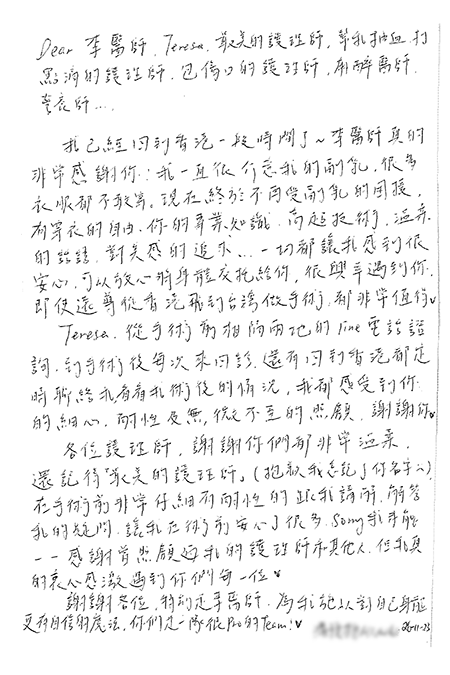 Dear 李醫師, Teresa, 最美的護理師, 幫我抽血、打
點滴的護理師, 包傷口的護理師, 麻醉醫師,
營養師...
我已經回到香港一段時間了~李醫師真的
非常感謝你!我一直很介意我的副乳, 很多
衣服都不敢穿。現在終於不再受副乳的困擾,
有穿衣的自由。你的專業知識、高超技術、溫柔
的說話、對美感的追求...一切都讓我感到很
安心, 可以放心將身體交托給你, 很興幸遇到你,
即使遠道從香港飛到台灣做手術, 都非常值得♥
Teresa, 從手術前相隔兩地的line電話諮
詢, 到手術後每次來回診, 還有回到香港都定
時聯絡我看看我術後的情況, 我都感受到你
的細心、耐性及無微不至的照顧, 謝謝你♥
各位護理師, 謝謝你們都非常溫柔,
還記得「最美的護理師」(抱歉我忘記了你名字)
在手術前非常仔細有耐性的跟我講解、解答
我的疑問, 讓我在術前安心了很多。Sorry我未能
一一感謝曾照顧過我的護理師和其他人, 但我真
的衷心感激遇到你們每一位♥
謝謝各位, 特別是李醫師, 為我施以對自己身體
更有自信的魔法, 你們是一隊很Pro的Team!♥